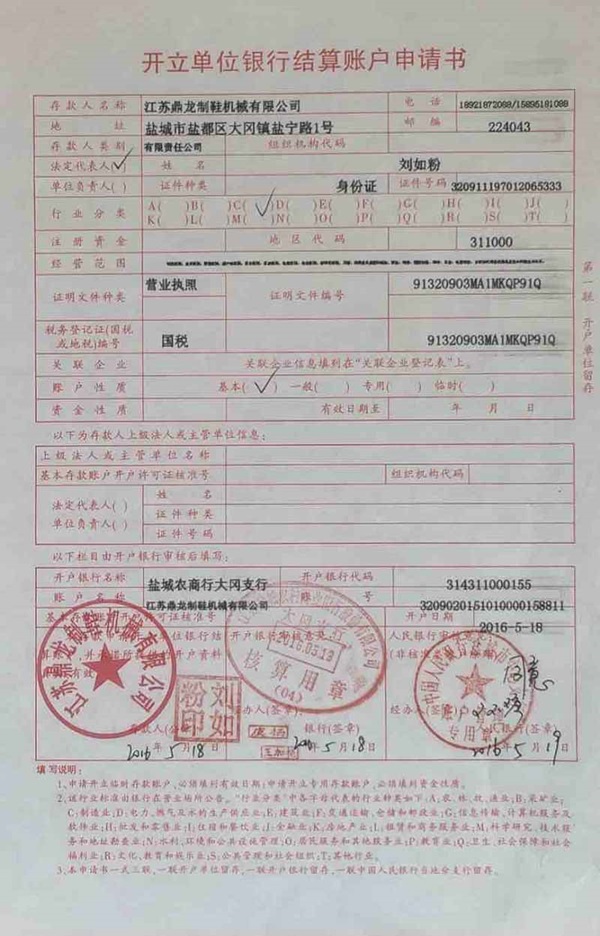 开立单位银行结算账户申请书
存款人名称 江苏鼎龙制鞋机械有限公司 电话 18921872088/15895181089
地址 盐城市盐都区大冈镇盐宁路1号 邮编 224043
存款人类别 有限责任公司 组织机构代码
法定代表人(✓) 姓名 刘如粉
单位负责人( ) 证件种类 身份证 证件号码 320911197012065333
行业分类 A( )B( )C(✓)D( )E( )F( )G( )H( )I( )J( )
K( )L( )M( )N( )O( )P( )Q( )R( )S( )T( )
注册资金 地区代码 311000
经营范围
证明文件种类 营业执照 证明文件编号 91320903MA1MKQP91Q
税务登记证(国税或地税)编号 国税 91320903MA1MKQP91Q
关联企业 关联企业信息填列在“关联企业登记表”上。
账户性质 基本(✓) 一般( ) 专用( ) 临时( )
资金性质 有效日期至 年 月 日
第一联 开户单位留存
以下为存款人上级法人或主管单位信息:
上级法人或主管单位名称
基本存款账户开户许可证核准号 组织机构代码
法定代表人( ) 姓名
单位负责人( ) 证件种类
证件号码
以下栏目由开户银行审核后填写:
开户银行名称 盐城农商行大冈支行 开户银行代码 314311000155
账户名称 江苏鼎龙制鞋机械有限公司 账号 3209020151010000158811
基本存款账户开户许可证核准号 开户日期 2016-5-18
开户银行审核意见
江苏鼎龙制鞋机械有限公司
大冈支行
2016.05.18
核算用章
(04)
中国人民银行
账户管理
专用章
刘如粉印
银行(签章)
2016年5月18日 2016年5月18日 2016年5月19日
填写说明:
1、申请开立临时存款账户,必须填列有效日期;申请开立专用存款账户,必须填列资金性质。
2、该行业标准由银行在营业场所公告。“行业分类”中各字母代表的行业种类如下:A:农、林、牧、渔业;B:采矿业;
C:制造业;D:电力、燃气及水的生产供应业;E:建筑业;F:交通运输、仓储和邮政业;G:信息传输、计算机服务及
软件业;H:批发和零售业;I:住宿和餐饮业;J:金融业;K:房地产业;L:租赁和商务服务业;M:科学研究、技术服
务和地址勘查业;N:水利、环境和公共设施管理;O:居民服务和其他服务业;P:教育业;Q:卫生、社会保障和社会
福利业;R:文化、教育和娱乐业;S:公共管理和社会组织;T:其他行业。
3、本申请书一式三联,一联开户单位留存,一联开户银行留存,一联中国人民银行当地分支行留存。